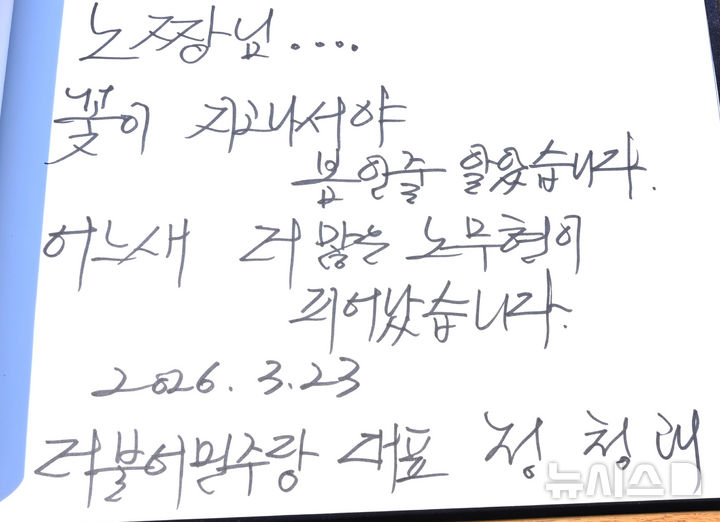 노짱님....
꽃이 지고나서야
봄인줄 알았습니다.
어느새 더 많은 노무현이
피어났습니다.
2026. 3.23
더불어민주당 대표 정청래
뉴시스